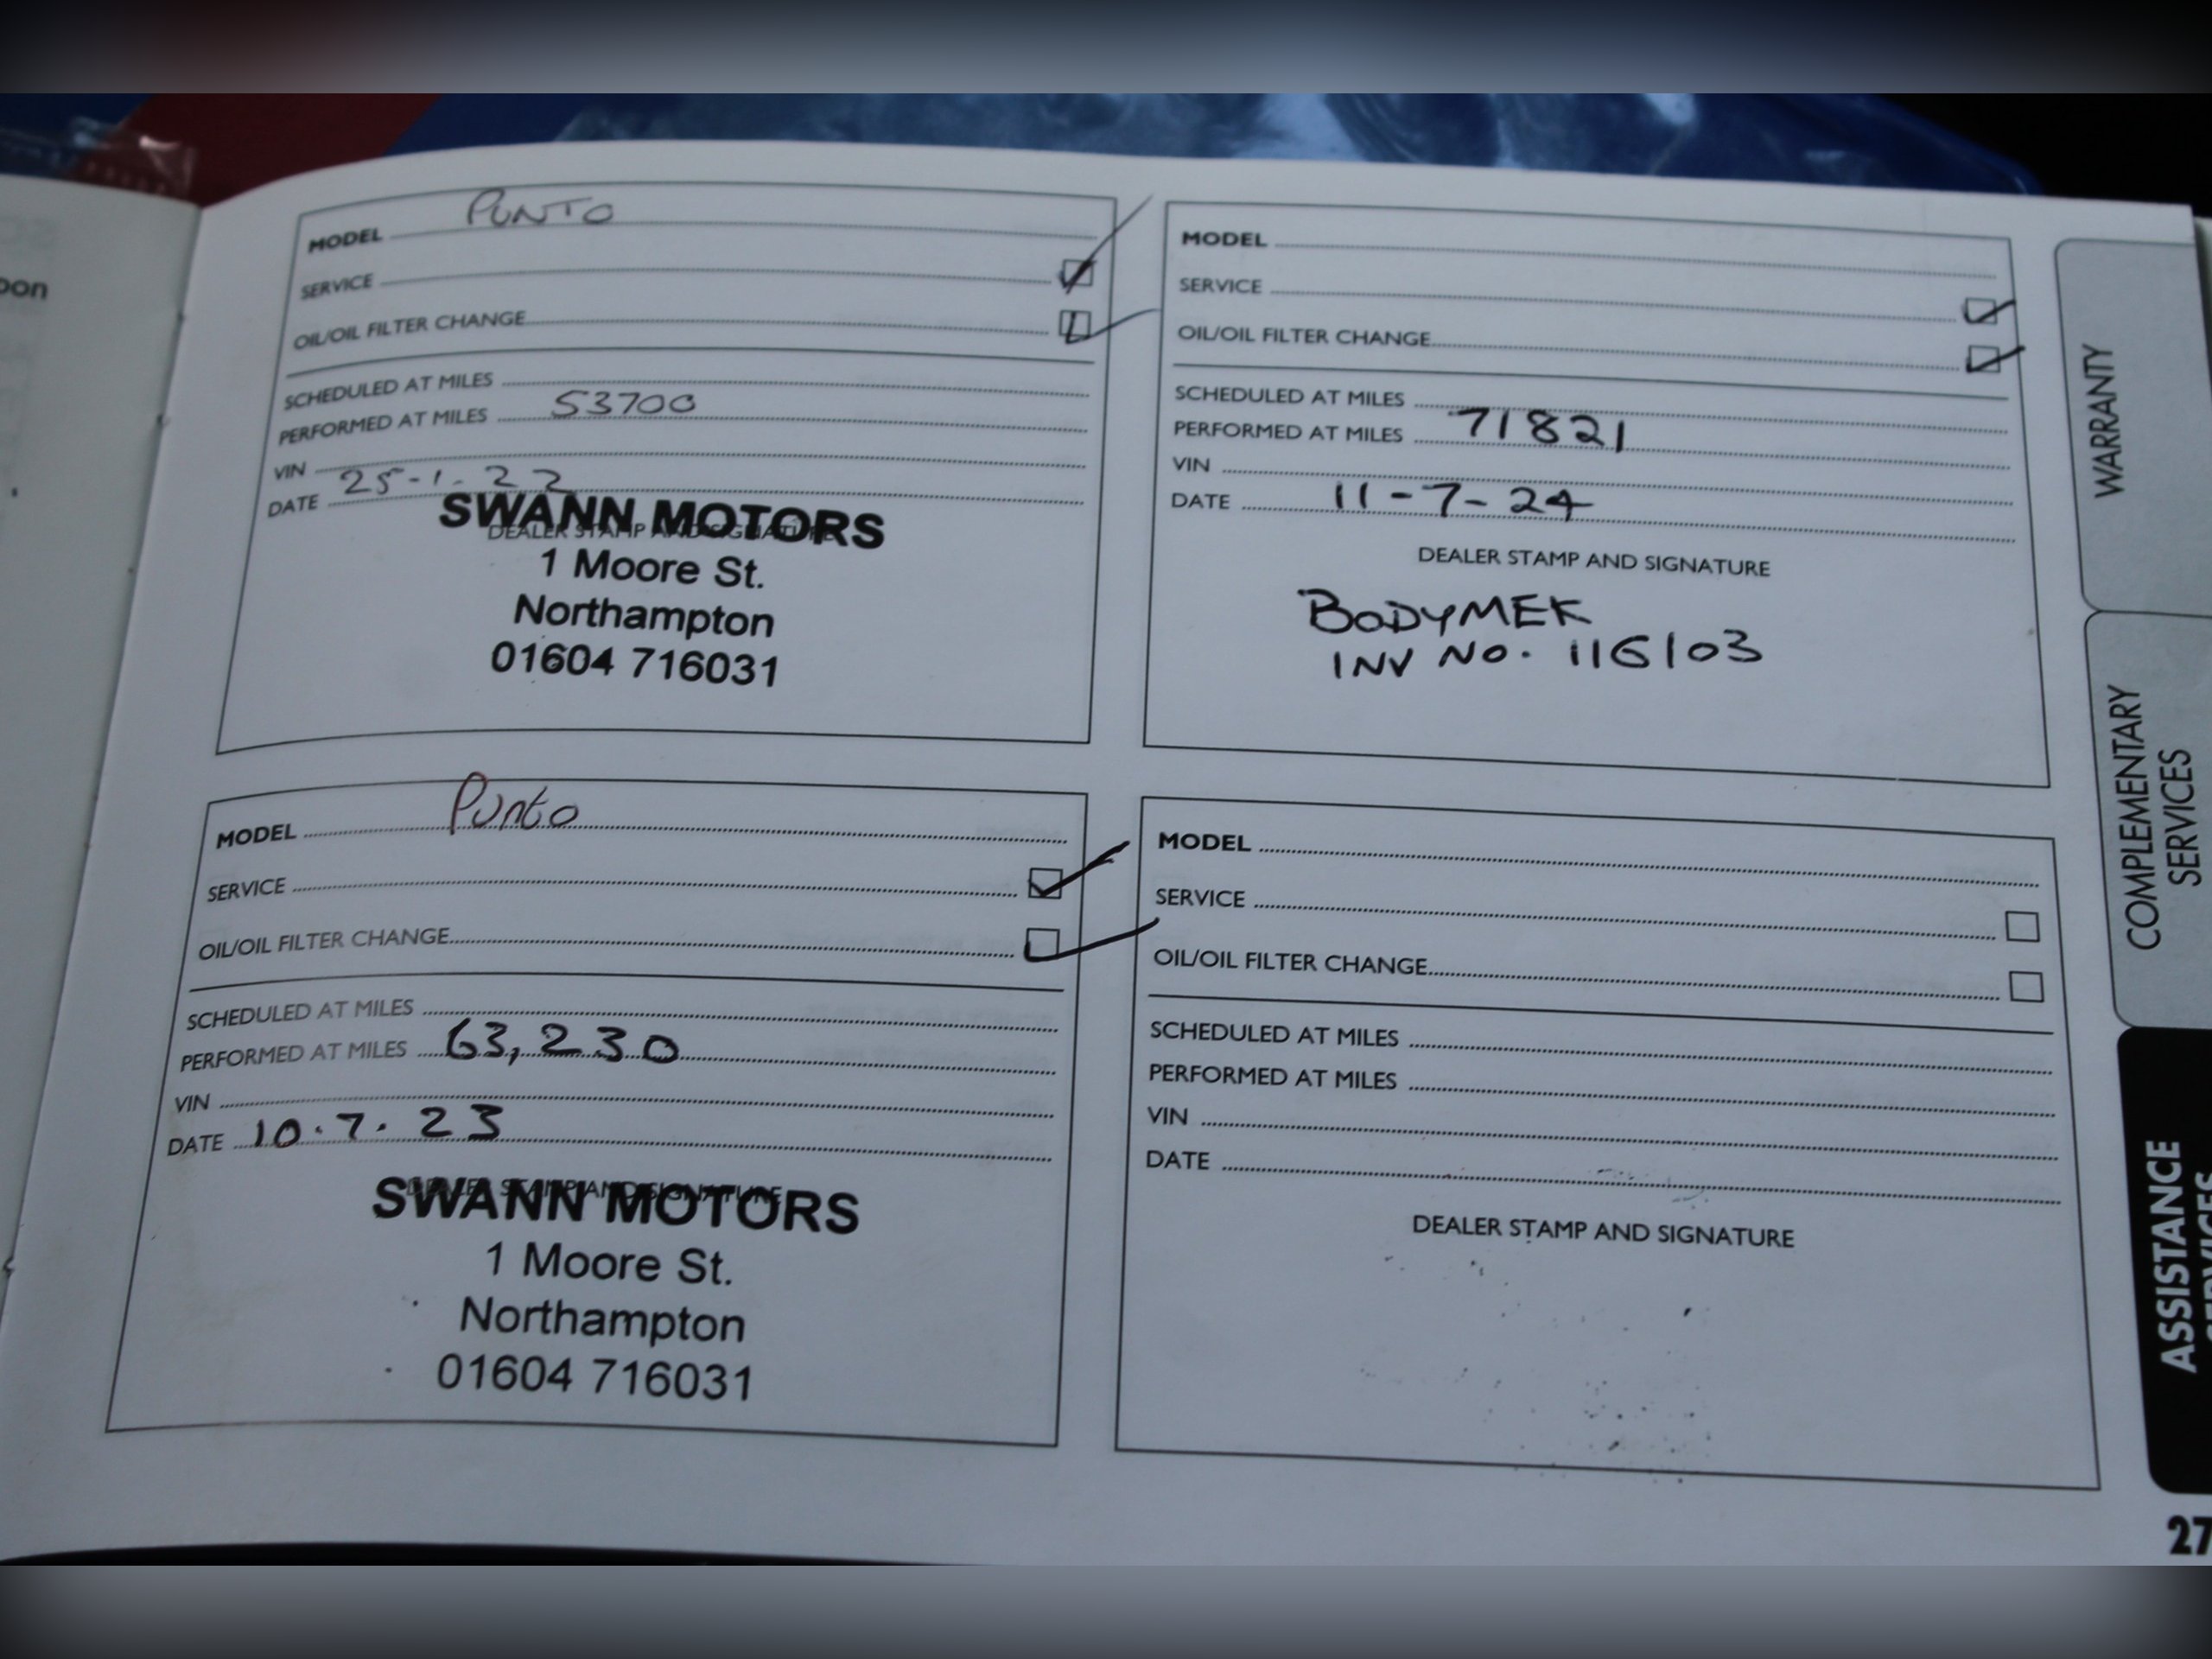 MODEL Punto
SERVICE
OIL/OIL FILTER CHANGE
SCHEDULED AT MILES
PERFORMED AT MILES 53700
VIN
DATE 25-1-22
DEALER STAMP AND SIGNATURE
SWANN MOTORS
1 Moore St.
Northampton
01604 716031
MODEL
SERVICE
OIL/OIL FILTER CHANGE
SCHEDULED AT MILES
PERFORMED AT MILES 71821
VIN
DATE 11-7-24
DEALER STAMP AND SIGNATURE
BODYMEK
INV NO. 116103
MODEL Punto
SERVICE
OIL/OIL FILTER CHANGE
SCHEDULED AT MILES
PERFORMED AT MILES 63,230
VIN
DATE 10.7.23
DEALER STAMP AND SIGNATURE
SWANN MOTORS
1 Moore St.
Northampton
01604 716031
MODEL
SERVICE
OIL/OIL FILTER CHANGE
SCHEDULED AT MILES
PERFORMED AT MILES
VIN
DATE
DEALER STAMP AND SIGNATURE
WARRANTY
COMPLEMENTARY
SERVICES
ASSISTANCE
SERVICES
27